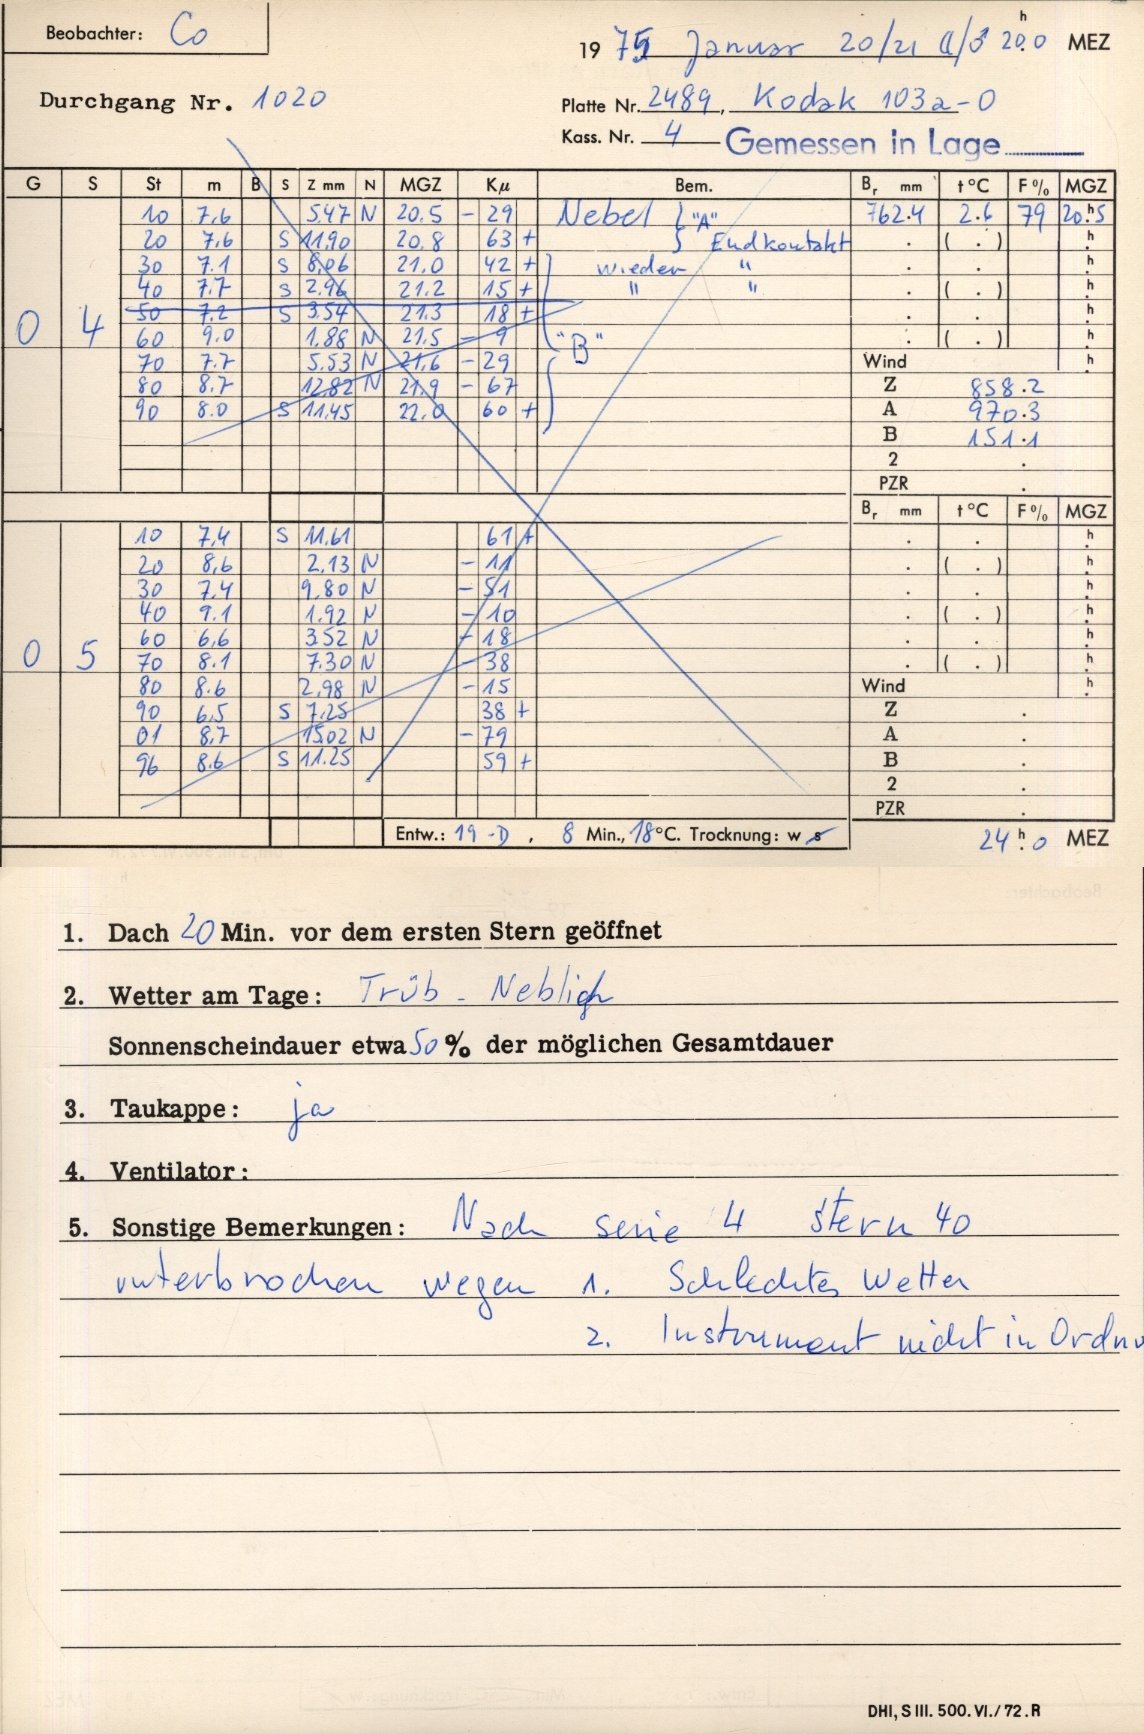 Beobachter: Co
1975 Januar 20/21 ☾/♂ 20ʰ.0 MEZ
Durchgang Nr. 1020
Platte Nr. 2489, Kodak 103a-O
Kass. Nr. 4 Gemessen in Lage
G S St m B S Z mm N MGZ Kμ Bem. Br mm t °C F % MGZ
0 4
10 7.6 5.47 N 20.5 - 29 Nebel } "A" 762.4 2.6 79 20ʰ.5
20 7.6 S 11.90 20.8 63 + } Endkontakt . ( . ) h.
30 7.1 S 8.06 21.0 42 + wieder " . . h.
40 7.7 S 2.96 21.2 15 + " " . ( . ) h.
50 7.2 S 3.54 21.3 18 + . . h.
60 9.0 1.88 N 21.5 - 9 "B" . ( . ) h.
70 7.7 5.53 N 21.6 - 29 Wind h.
80 8.7 12.82 N 21.9 - 67 Z 858.2
90 8.0 S 11.45 22.0 60 + A 970.3
B 151.1
2 .
PZR .
Br mm t °C F % MGZ
0 5
10 7.4 S 11.61 61 + . . h.
20 8.6 2.13 N - 11 . ( . ) h.
30 7.4 9.80 N - 51 . . h.
40 9.1 1.92 N - 10 . ( . ) h.
60 6.6 3.52 N - 18 . . h.
70 8.1 7.30 N - 38 . ( . ) h.
80 8.6 2.98 N - 15 Wind h.
90 6.5 S 7.25 38 + Z .
01 8.7 15.02 N - 79 A .
96 8.6 S 11.25 59 + B .
2 .
PZR .
Entw.: 19-D, 8 Min., 18°C. Trocknung: w s
24ʰ.0 MEZ
1. Dach 20 Min. vor dem ersten Stern geöffnet
2. Wetter am Tage: Trüb - Neblich
Sonnenscheindauer etwa 50% der möglichen Gesamtdauer
3. Taukappe: ja
4. Ventilator:
5. Sonstige Bemerkungen: Nach serie 4 stern 40
unterbrochen wegen 1. Schlechtes Wetter
2. Instrument nicht in Ordnu
DHI, S III. 500. VI./72. R